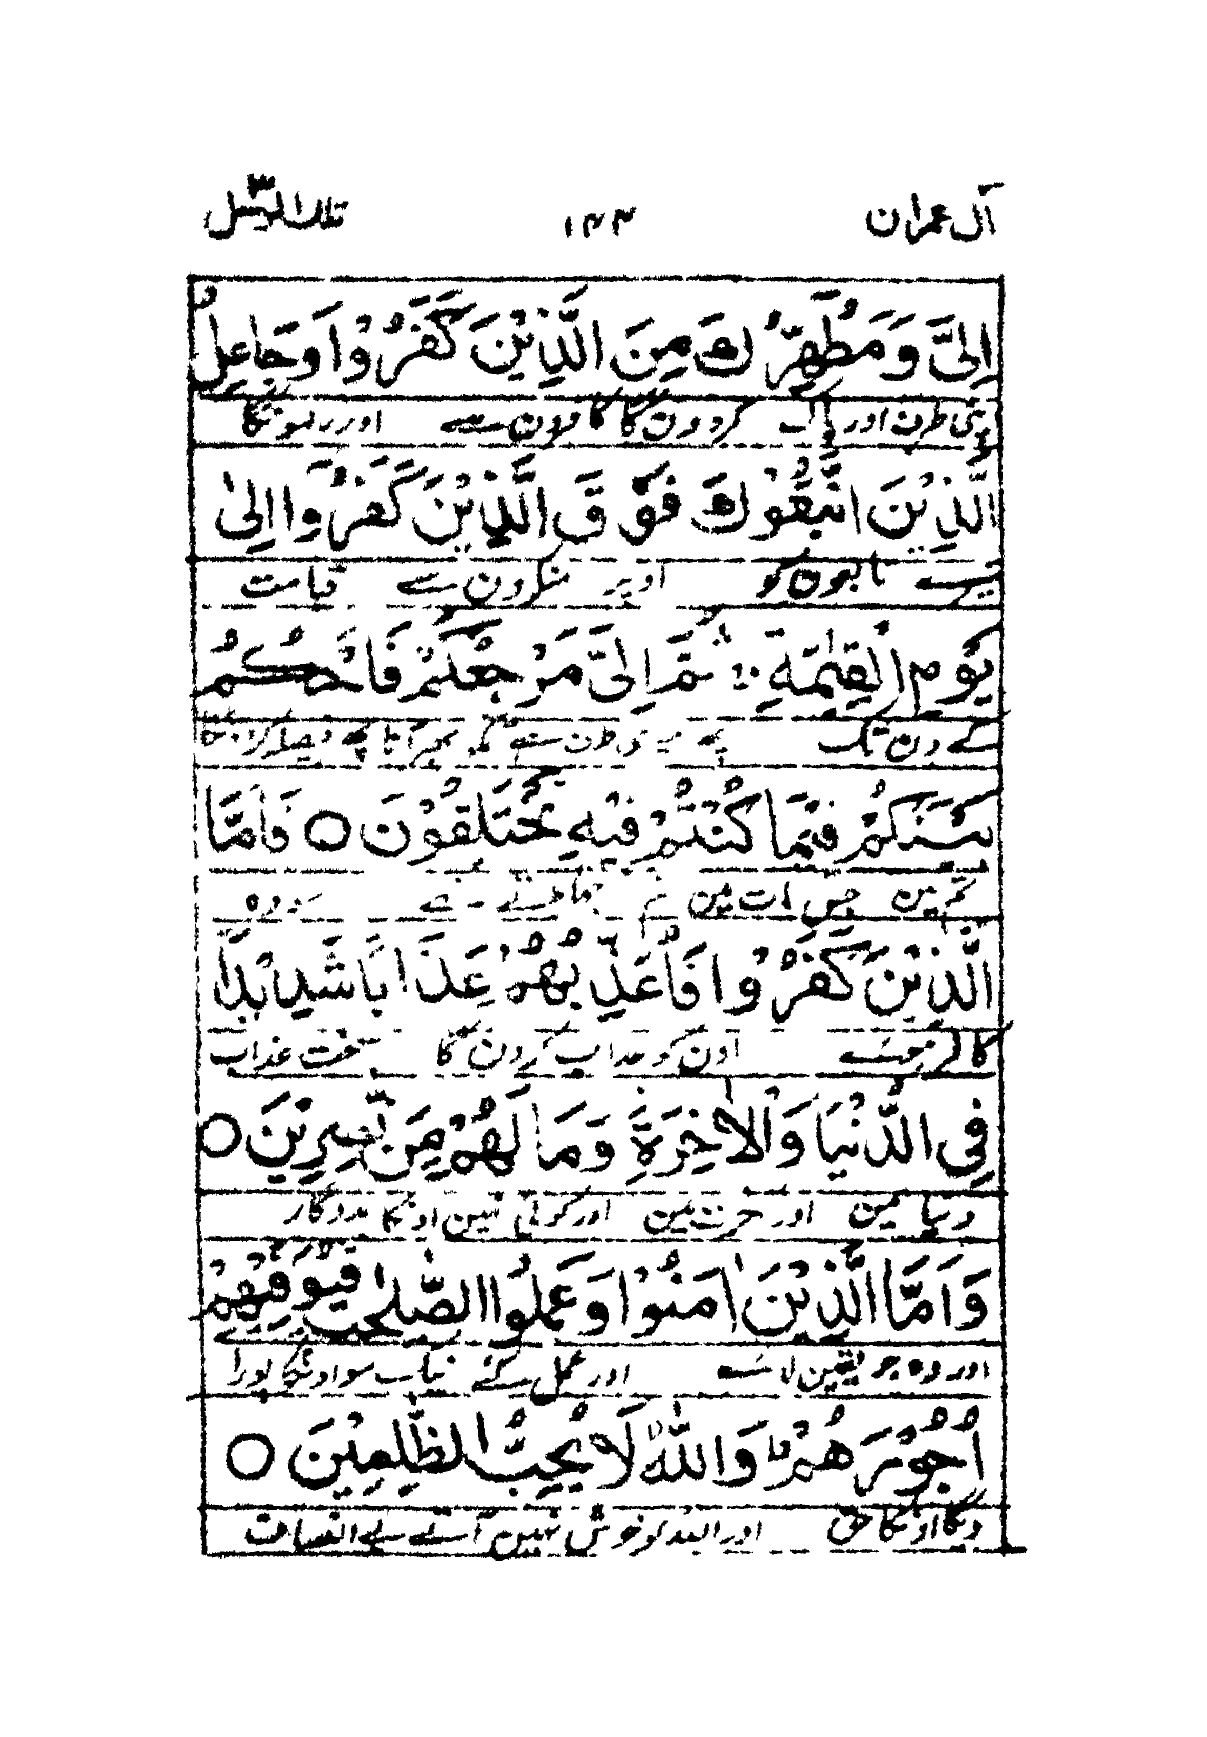 آل عمران ۱۴۳ تلك الرسل ۳
اِلَیَّ وَمُطَهِّرُكَ مِنَ الَّذِیْنَ كَفَرُوْا وَجَاعِلُ
اپنی طرف اور پاک کردون گا کافرون سے اور رکھونگا
الَّذِیْنَ اتَّبَعُوْكَ فَوْقَ الَّذِیْنَ كَفَرُوْۤا اِلٰی
تیرے تابعون کو اوپر منکرون سے قیامت
یَوْمِ الْقِیٰمَةِ ۚ ثُمَّ اِلَیَّ مَرْجِعُكُمْ فَاَحْكُمُ
کے دن تک پھر میری طرف ہے تمکو پھر آنا پھر فیصلہ کرونگا
بَیْنَكُمْ فِیْمَا كُنْتُمْ فِیْهِ تَخْتَلِفُوْنَ ○ فَاَمَّا
تم مین جس بات مین تم جھگڑتے تھے سو وہ
الَّذِیْنَ كَفَرُوْا فَاُعَذِّبُهُمْ عَذَابًا شَدِیْدًا
کافر ہوئے اون کو عذاب کرون گا سخت عذاب
فِی الدُّنْیَا وَالْاٰخِرَةِ وَمَا لَهُمْ مِّنْ نّٰصِرِیْنَ ○
دنیا مین اور آخرت مین اور کوئی نہین اونکا مددگار
وَاَمَّا الَّذِیْنَ اٰمَنُوْا وَعَمِلُوا الصّٰلِحٰتِ فَیُوَفِّیْهِمْ
اور وہ جو یقین لائے اور عمل کئے نیک سو اونکو پورا
اُجُوْرَهُمْ ؕ وَاللّٰهُ لَا یُحِبُّ الظّٰلِمِیْنَ ○
دیگا اونکا حق اور اللہ کو خوش نہین آتے بے انصاف